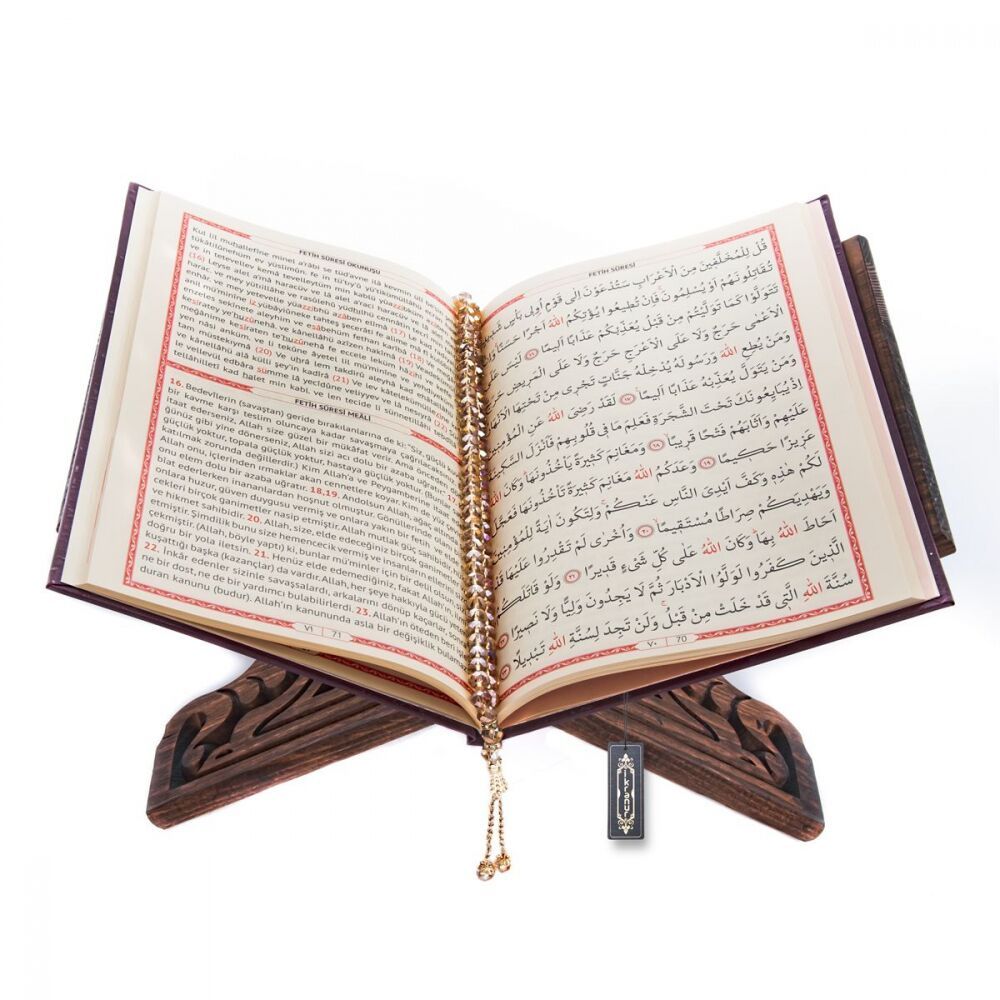 FETİH SÛRESİ
قُلْ لِلْمُخَلَّفينَ مِنَ الْاَعْرَابِ سَتُدْعَوْنَ اِلٰى قَوْمٍ اُولى بَأْسٍ
تُقَاتِلُونَهُمْ اَوْ يُسْلِمُونَۚ فَاِنْ تُطيعُوا يُؤْتِكُمُ اللّٰهُ اَجْرًا حَسَنًا
تَتَوَلَّوْا كَمَا تَوَلَّيْتُمْ مِنْ قَبْلُ يُعَذِّبْكُمْ عَذَابًا اَليمًا ﴿١٦﴾ لَيْسَ
الْاَعْمٰى حَرَجٌ وَلَا عَلَى الْاَعْرَجِ حَرَجٌ وَلَا عَلَى الْمَريضِ
وَمَنْ يُطِعِ اللّٰهَ وَرَسُولَهُ يُدْخِلْهُ جَنَّاتٍ تَجْرى مِنْ تَحْتِهَا
وَمَنْ يَتَوَلَّ يُعَذِّبْهُ عَذَابًا اَليمًا ﴿١٧﴾ لَقَدْ رَضِىَ اللّٰهُ عَنِ
اِذْ يُبَايِعُونَكَ تَحْتَ الشَّجَرَةِ فَعَلِمَ مَا فى قُلُوبِهِمْ فَاَنْزَلَ
عَلَيْهِمْ وَاَثَابَهُمْ فَتْحًا قَريبًا ﴿١٨﴾ وَمَغَانِمَ كَثيرَةً يَأْخُذُونَهَا وَكَانَ
عَزيزًا حَكيمًا ﴿١٩﴾ وَعَدَكُمُ اللّٰهُ مَغَانِمَ كَثيرَةً تَأْخُذُونَهَا فَعَجَّلَ
لَكُمْ هٰذِهِ وَكَفَّ اَيْدِىَ النَّاسِ عَنْكُمْۚ وَلِتَكُونَ اٰيَةً لِلْمُؤْمِنينَ
وَيَهْدِيَكُمْ صِرَاطًا مُسْتَقيمًا ﴿٢٠﴾ وَاُخْرٰى لَمْ تَقْدِرُوا عَلَيْهَا
اَحَاطَ اللّٰهُ بِهَا وَكَانَ اللّٰهُ عَلٰى كُلِّ شَىْءٍ قَديرًا ﴿٢١﴾ وَلَوْ قَاتَلَكُمُ
الَّذينَ كَفَرُوا لَوَلَّوُا الْاَدْبَارَ ثُمَّ لَا يَجِدُونَ وَلِيًّا وَلَا نَصيرًا ﴿٢٢﴾
سُنَّةَ اللّٰهِ الَّتى قَدْ خَلَتْ مِنْ قَبْلُ وَلَنْ تَجِدَ لِسُنَّةِ اللّٰهِ تَبْديلًا ﴿٢٣﴾
٧٠ 70
FETİH SÛRESİ OKUNUŞU
Kul lil muḫallefîne minel a'râbi se tüd'avne ilâ kavmin ülî
tükâtilûnehüm ev yüslimûn. fe in tü'tıy'û yü'tikümüllâhü
ve in tetevellev kemâ tevelleytüm min kablü yüazzibküm
(16) Leyse alel a'mâ haracüv ve lâ alel a'raci haracüv ve lâ alel
harac. ve mey yütıillâhe ve rasûlehû yüdhılhü cennâtin
enhâr. ve mey yetevelle yüazzibhü azâben elîmâ (17) Le kad
anil mü'minîne iz yübâyiûneke tahteş şecerati fe alime mâ fî
enzeles sekînete aleyhim ve esâbehüm fethan karîbâ (18) Ve
kesîratey ye'huzûnehâ, ve kânellâhü azîzen hakîmâ (19)
meğânime kesîraten te'huzûnehâ fe accele leküm hâzihî ve
tan nâsi anküm. ve li tekûne âyetel lil mü'minîne ve yehdiyeküm
müstekıymâ (20) Ve uhrâ lem takdirû aleyhâ kad ehâtallâhü
ve kânellâhü alâ külli şey'in kadîrâ (21) Ve lev kâtelekümüllezîne
vellevül edbâra sümme lâ yecidûne veliyyev ve lâ nesîrâ (22)
tellâhilletî kad halet min kabl. ve len tecide li sünnetillâhi
FETİH SÛRESİ MEÂLİ
16. Bedevîlerin (savaştan) geride bırakılanlarına de ki: "Siz, güçlü
bir kavme karşı teslim oluncaya kadar savaşmaya çağrılacaksınız.
itaat ederseniz, Allah size güzel bir mükâfat verir. Ama önceden
günüz gibi yine dönerseniz, Allah sizi acı dolu bir azaba uğratır." 17.
güçlük yoktur, topala güçlük yoktur, hastaya güçlük yoktur. (Bunlar
katılmak zorunda değillerdir.) Kim Allah'a ve Peygamberine
Allah onu, içlerinden ırmaklar akan cennetlere koyar. Kim de yüz
onu elem dolu bir azaba uğratır. 18,19. Andolsun Allah, ağaç altında
biat ederlerken inananlardan hoşnut olmuştur. Gönüllerinde
onlara huzur, güven duygusu vermiş ve onlara yakın bir fetih ve
cekleri birçok ganimetler nasip etmiştir. Allah mutlak güç sahibidir,
ve hikmet sahibidir. 20. Allah, size, elde edeceğiniz birçok ganimetler
çekmiştir. Şimdilik bunu size hemencecik vermiş ve insanların ellerini
çekmiştir. (Allah, böyle yaptı) ki, bunlar mü'minler için bir delil
doğru bir yola iletsin. 21. Henüz elde edemediğiniz, fakat Allah'ın
kuşattığı başka (kazançlar) da vardır. Allah, her şeye hakkıyla gücü
22. İnkâr edenler sizinle savaşsalardı, arkalarını dönüp kaçarlar, sonra
ne bir dost, ne de bir yardımcı bulabilirlerdi. 23. Allah'ın öteden beri
duran kanunu (budur). Allah'ın kanununda asla bir değişiklik bulamazsın.
٧١ 71
ikranur